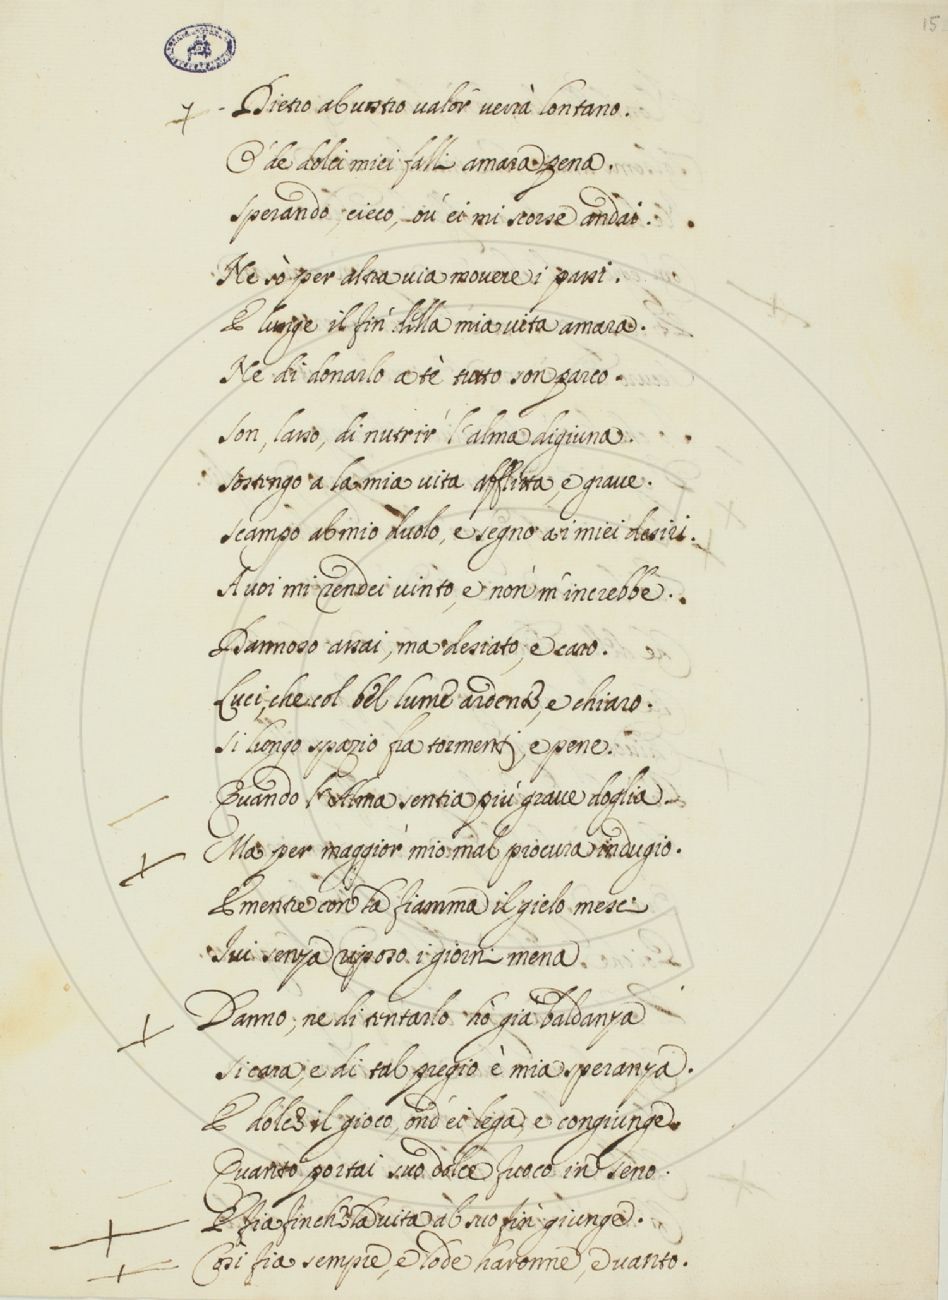 15
Dietro al vostro valor verrà lontano.
E de dolci miei falli amara pena.
Sperando, cieco, ov' ei mi scorse andai.
Ne sò per altra via movere i passi.
E lunge il fin della mia vita amara.
Ne di donarlo a tè tutto son parco.
Son, lasso, di nutrir l'alma digiuna.
Sostengo a la mia vita afflitta, e grave.
Scampo al mio duolo, e segno ai miei desiri.
A voi mi rendei vinto, e non m'increbbe.
Dannoso assai, ma desiato, e caro.
Luci, che col bel lume ardente, e chiaro.
Si lungo spazio fra tormenti, e pene.
Quando l'Alma sentia più grave doglia
Ma per maggior mio mal procura indugio.
E mentre con la fiamma il gielo mesci
Ivi senza riposo i giorni mena
Danno, ne di tentarlo hò già baldanza
Si cara, e di tal pregio è mia speranza.
E dolce il gioco, ond' ei lega, e congiunge.
Quanto portai suo dolce fuoco in seno.
E fia finche la vita al suo fin giunge.
Così fia sempre, e lode havronne, e vanto.